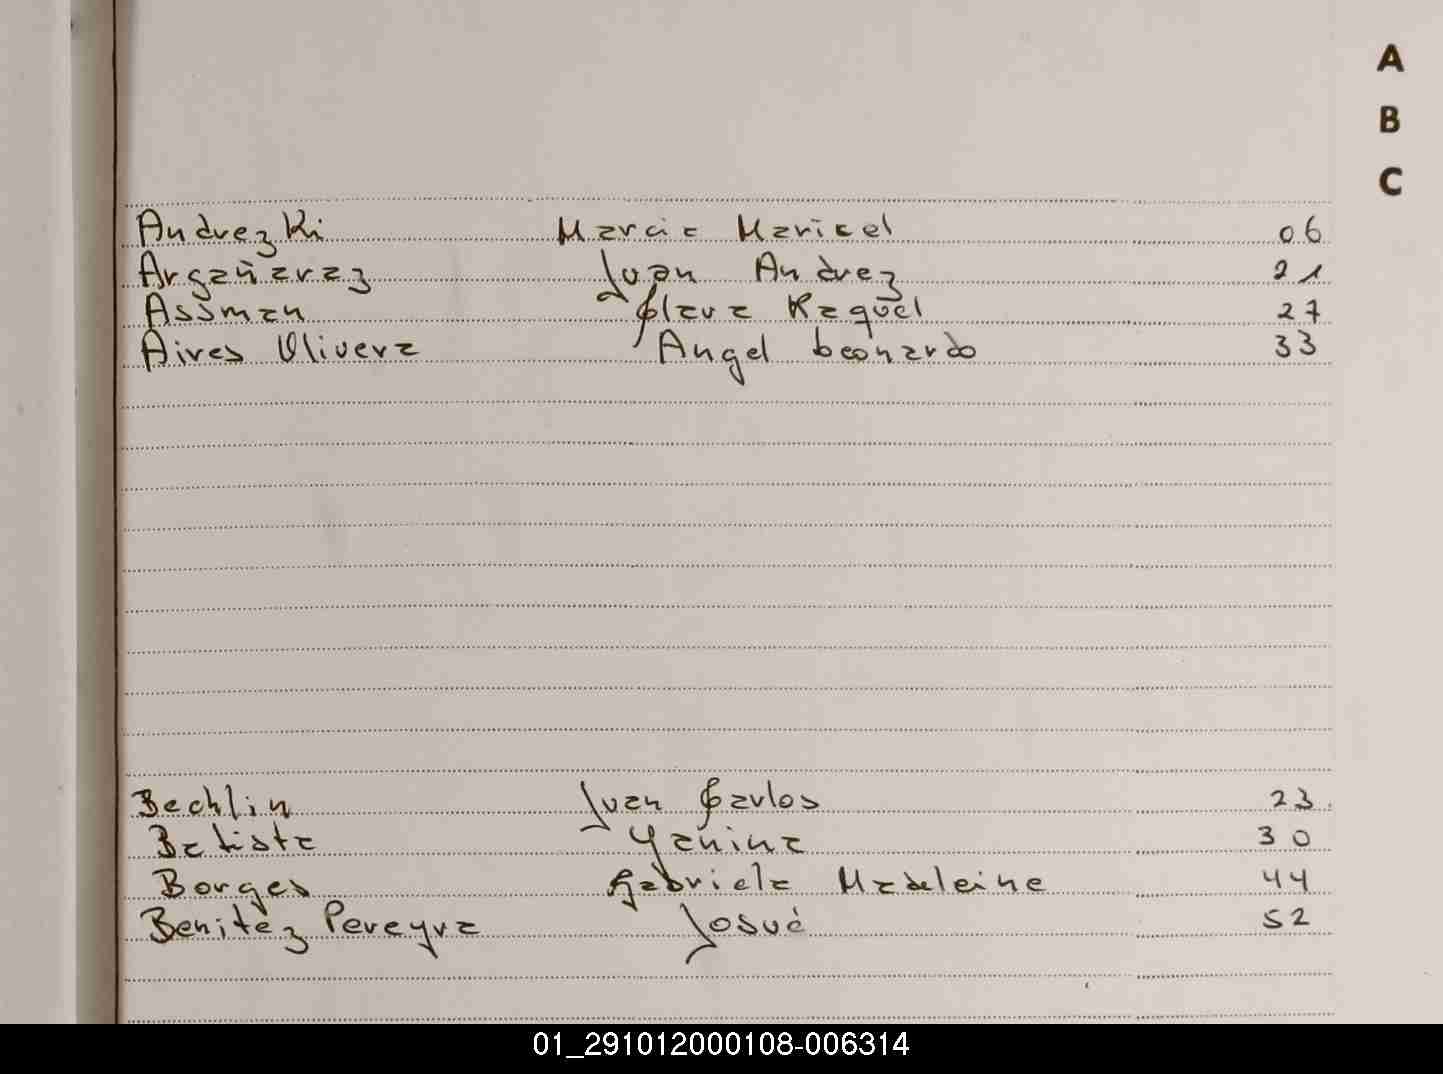 A
B
C
Andrezki Marcia Maricel 06
Argañaraz Juan Andrez 21
Assman Clara Raquel 27
Aires Olivera Angel Leonardo 33
Bechlin Juan Carlos 23
Batista Yanina 30
Borges Gabriela Madeleine 44
Benitez Pereyra Josué 52
01_291012000108-006314